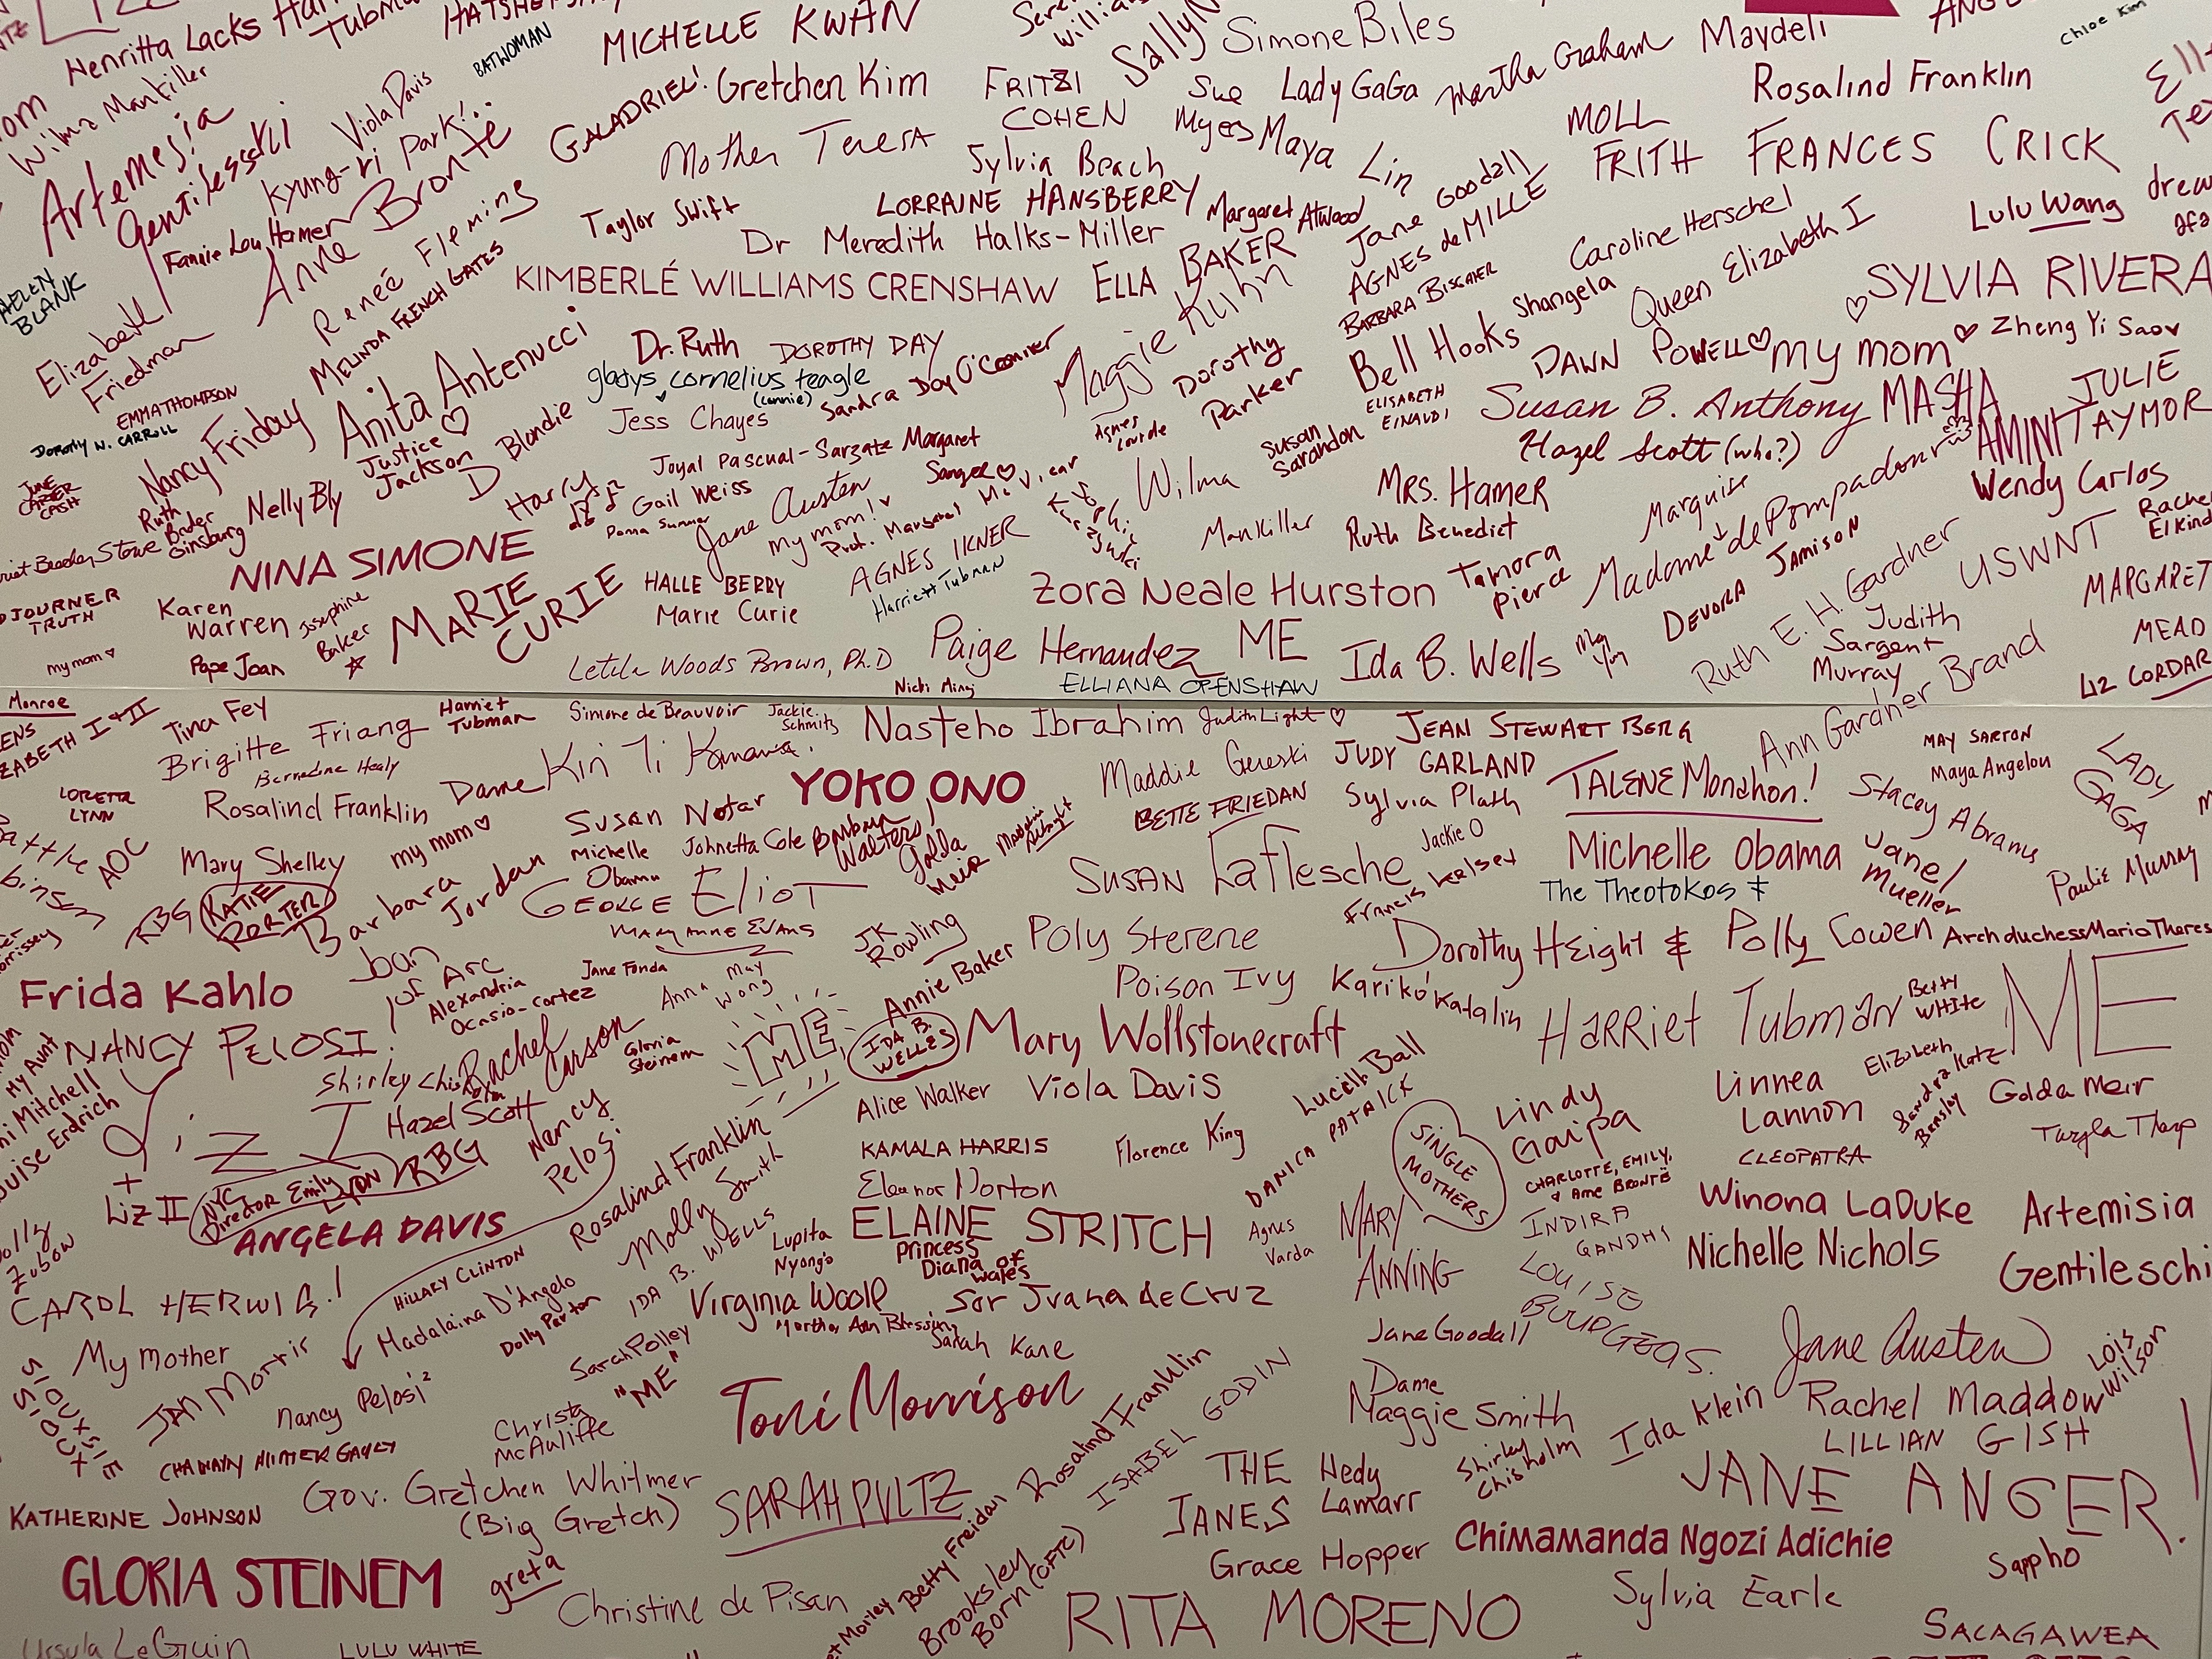 Henritta Lacks
Wilma Mankiller
BATWOMAN
MICHELLE KWAN
Simone Biles
Maydeli
Chloe Kim
Artemesia
Gentilesschi
Viola Davis
Kyung-ri Park!
GALADRIEL!
Gretchen Kim
FRITZI
COHEN
Sue
Myers
Lady GaGa
Martha Graham
Rosalind Franklin
Mother Teresa
Sylvia Beach
Maya Lin
MOLL
FRITH
FRANCES CRICK
Fannie Lou Hamer
Anne Bronte
Reneé Fleming
Taylor Swift
LORRAINE HANSBERRY
Margaret Atwood
Jane Goodall
AGNES de MILLE
Caroline Herschel
Lulu Wang
HELEN
BLANK
Dr Meredith Halks-Miller
MELINDA FRENCH GATES
KIMBERLÉ WILLIAMS CRENSHAW
ELLA BAKER
BARBARA BISGAIER
Shangela
Queen Elizabeth I
SYLVIA RIVERA
Elizabeth
Friedman
Dr. Ruth
DOROTHY DAY
Maggie Kuhn
Bell Hooks
DAWN POWELL
my mom
Zheng Yi Sao
EMMA THOMPSON
DOROTHY N. CARROLL
Nancy Friday
Anita Antenucci
gladys cornelius teagle
(connie)
Jess Chayes
Sandra Day O'Conner
Dorothy
Parker
ELISABETH
EINAUDI
Susan B. Anthony
MASHA
AMINI
JULIE
TAYMOR
JUNE
CARTER
CASH
Justice
Jackson
D Blondie
Susan
Sarandon
Hazel Scott (who?)
Ruth
Bader
Ginsburg
Nelly Bly
Harry
Joyal Pascual-Sargate
Margaret
Sanger
Gail Weiss
Donna Summer
Jane Austen
my mom!
Wilma
Mankiller
MRS. HAMER
Ruth Benedict
Marquise
Madame de Pompadour
Wendy Carlos
NINA SIMONE
AGNES IKNER
Harriett Tubman
DEVORA JAMISON
USWNT
SOJOURNER
TRUTH
Karen
Warren
Josephine
Baker
MARIE
CURIE
HALLE BERRY
Marie Curie
Zora Neale Hurston
Tamora
Pierce
Ruth E. H. Gardner
MARGARET
MEAD
my mom
Pope Joan
Leticia Woods Brown, Ph.D
Paige Hernandez
ME
Ida B. Wells
Judith
Sargent
Murray
LIZ CORDAR
Nicki Minaj
ELLIANA OPENSHAW
Monroe
Tina Fey
Harriet
Tubman
Simone de Beauvoir
Jackie
Schmitz
Nasteho Ibrahim
Judith Light
JEAN STEWART BERG
Ann Gardner Brand
MAY SARTON
Maya Angelou
LADY
GAGA
Brigitte Friang
Bernadine Healy
Dame Kiri Ti Kanawa
YOKO ONO
JUDY GARLAND
TALENE Monahon!
LORETTA
LYNN
Rosalind Franklin
Susan Notar
BETTE FRIEDAN
Sylvia Plath
Stacey Abrams
AOC
Mary Shelley
my mom
Michelle
Obama
Johnetta Cole
Barbara
Walters!
Golda
Meir
Madeleine
Albright
SUSAN LaFlesche
Jackie O
Francis Kelsey
Michelle Obama
The Theotokos
Janel
Mueller
Paulie Murray
RBG
KATIE
PORTER
Barbara Jordan
GEORGE Eliot
MARY ANNE EVANS
JK
Rowling
Annie Baker
Poly Sterene
Poison Ivy
Dorothy HEight & Polly Cowen
Archduchess Maria Theres
Frida Kahlo
Joan
of Arc
Alexandria
Ocasio-Cortez
Jane Fonda
Anna
May
Wong
Karikó Katalin
HARRIET Tubman
Betty
WHITE
ME
NANCY PELOSI!
Rachel
Carson
Gloria
Steinem
ME
IDA B.
WELLES
Mary Wollstonecraft
My Aunt
Shirley Chisholm
Hazel Scott
Alice Walker
Viola Davis
Lucille Ball
DANICA PATRICK
SINGLE
MOTHERS
Lindy
Gaipa
Linnea
Lannon
Golda Meir
Twyla Tharp
Liz I
+
Liz II
NYC
Director Emily
LYON
RBG
Nancy
Pelosi
Rosalind Franklin
KAMALA HARRIS
Florence King
CHARLOTTE, EMILY,
& Anne BRONTË
CLEOPATRA
ANGELA DAVIS
Molly Smith
Eleanor Norton
ELAINE STRITCH
Agnes
Varda
MARY
ANNING
INDIRA
GANDHI
Winona LaDuke
Nichelle Nichols
Artemisia
Gentileschi
HILLARY CLINTON
IDA B. WELLS
Lupita
Nyong'o
Princess
Diana of
Wales
CAROL HERWIG!
Madalaina D'Angelo
Dolly Parton
Virginia Woolf
Sor Juana de Cruz
LOUISE
BOURGEOS.
My mother
JAN Morris
Sarah Polley
Sarah Kane
Jane Goodall
Jane Austen
Lois
Wilson
SIOUXSIE
SIOUX
Nancy Pelosi²
"ME"
Toni Morrison
Dame
Maggie Smith
Ida Klein
Rachel Maddow
Christa
McAuliffe
Rosalind Franklin
ISABEL GODIN
Shirley
Chisholm
LILLIAN GISH
KATHERINE JOHNSON
Gov. Gretchen Whitmer
(Big Gretch)
SARAH PULTZ
THE
JANES
Hedy
Lamarr
JANE ANGER!
GLORIA STEINEM
greta
Betty Freidan
Grace Hopper
Chimamanda Ngozi Adichie
Sappho
Christine de Pisan
Brooksley
Born (CFTC)
RITA MORENO
Sylvia Earle
Ursula LeGuin
LULU WHITE
SACAGAWEA